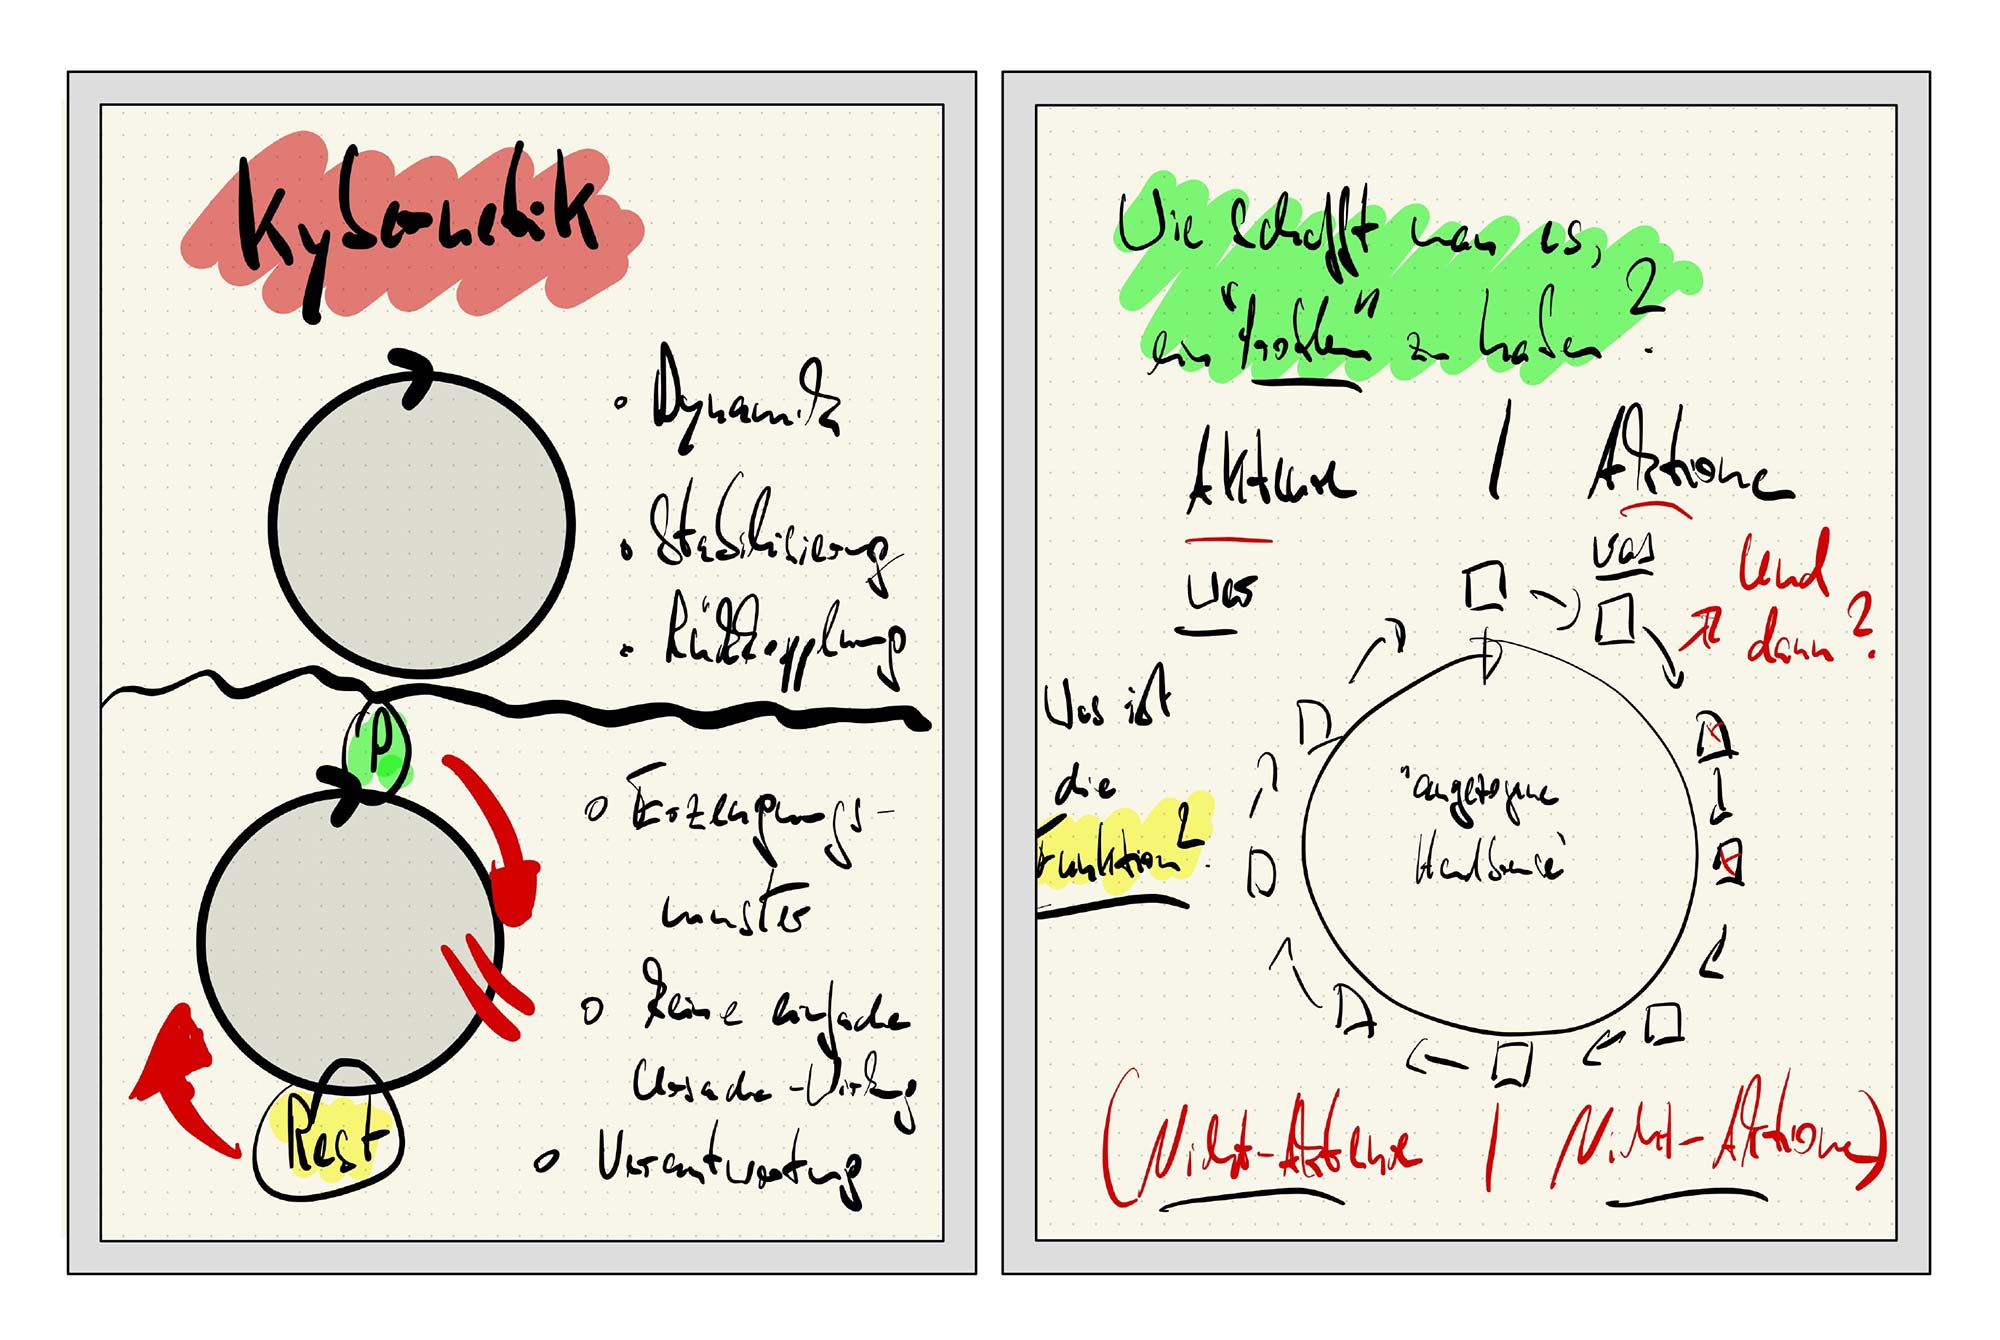 Kybernetik
• Dynamik
• Stabilisierung
• Rückkopplung
P
o Erzeugungs-
muster
o Keine einfache
Ursache-Wirkung
o Verantwortung
Rest
Wie schafft man es,
ein "Problem" zu haben?
Akteure | Aktionen
Wer
was
Und
dann?
Was ist
die
Funktion?
"angezogene
Handbremse"
(Nicht-Akteure | Nicht-Aktionen)